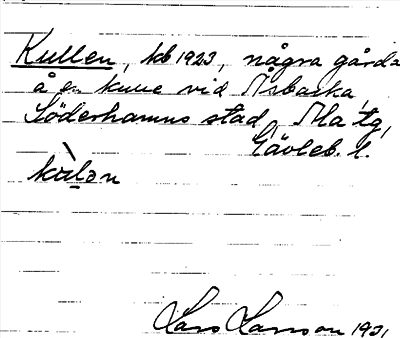 Kullen, kb 1923, några gårda
å en kulle vid Åsbacka,
Söderhamns stad, Ala tg,
Gävleb. l.
kòlən
Lars Larsson 1931